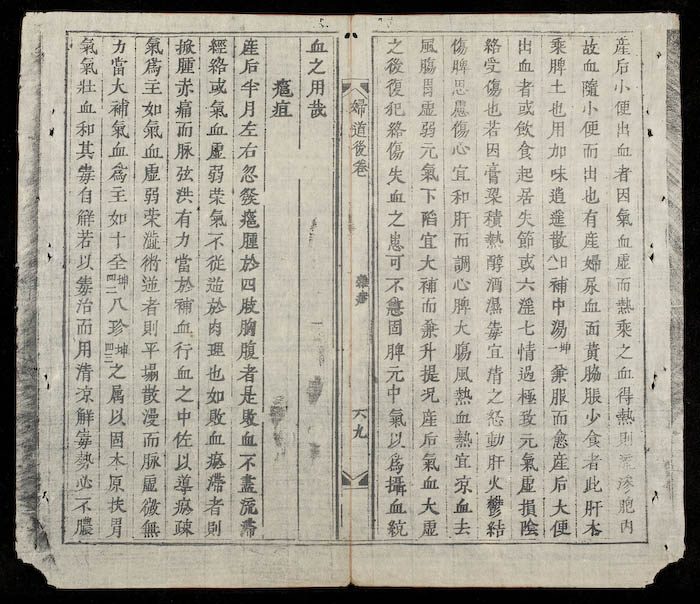 産后小便出血者因氣血虛而熱乘之血得熱則流滲胞內
故血隨小便而出也有産婦尿血面黃脇脹少食者此肝木
乘脾土也用加味逍遙散八日補中湯坤一兼服而愈産后大便
出血者或飲食起居失節或六淫七情過極致元氣虛損陰
絡受傷也若因膏粱積熱醇酒濕毒宜清之怒動肝火鬱結
傷脾思慮傷心宜和肝而調心脾大腸風熱血熱宜凉血去
風腸胃虛弱元氣下陷宜大補而兼升提况産后氣血大虛
之後復犯絡傷失血之患可不急固脾元中氣以爲攝血統
婦道後卷
雜症
六九
血之用哉
瘡疽
産后半月左右忽發瘡腫於四肢胸腹者是敗血不盡流滯
經絡或氣血虛弱荣氣不從逆於肉理也如敗血瘀滯者則
掀腫赤痛而脉弦洪有力當於補血行血之中佐以導瘀疎
氣爲主如氣血虛弱荣濇衛逆者則平塌散漫而脉虛微無
力當大補氣血爲主如十全坤四二八珍坤四三之属以固本原扶胃
氣氣壯血和其毒自解若以毒治而用清凉解毒勢必不膿